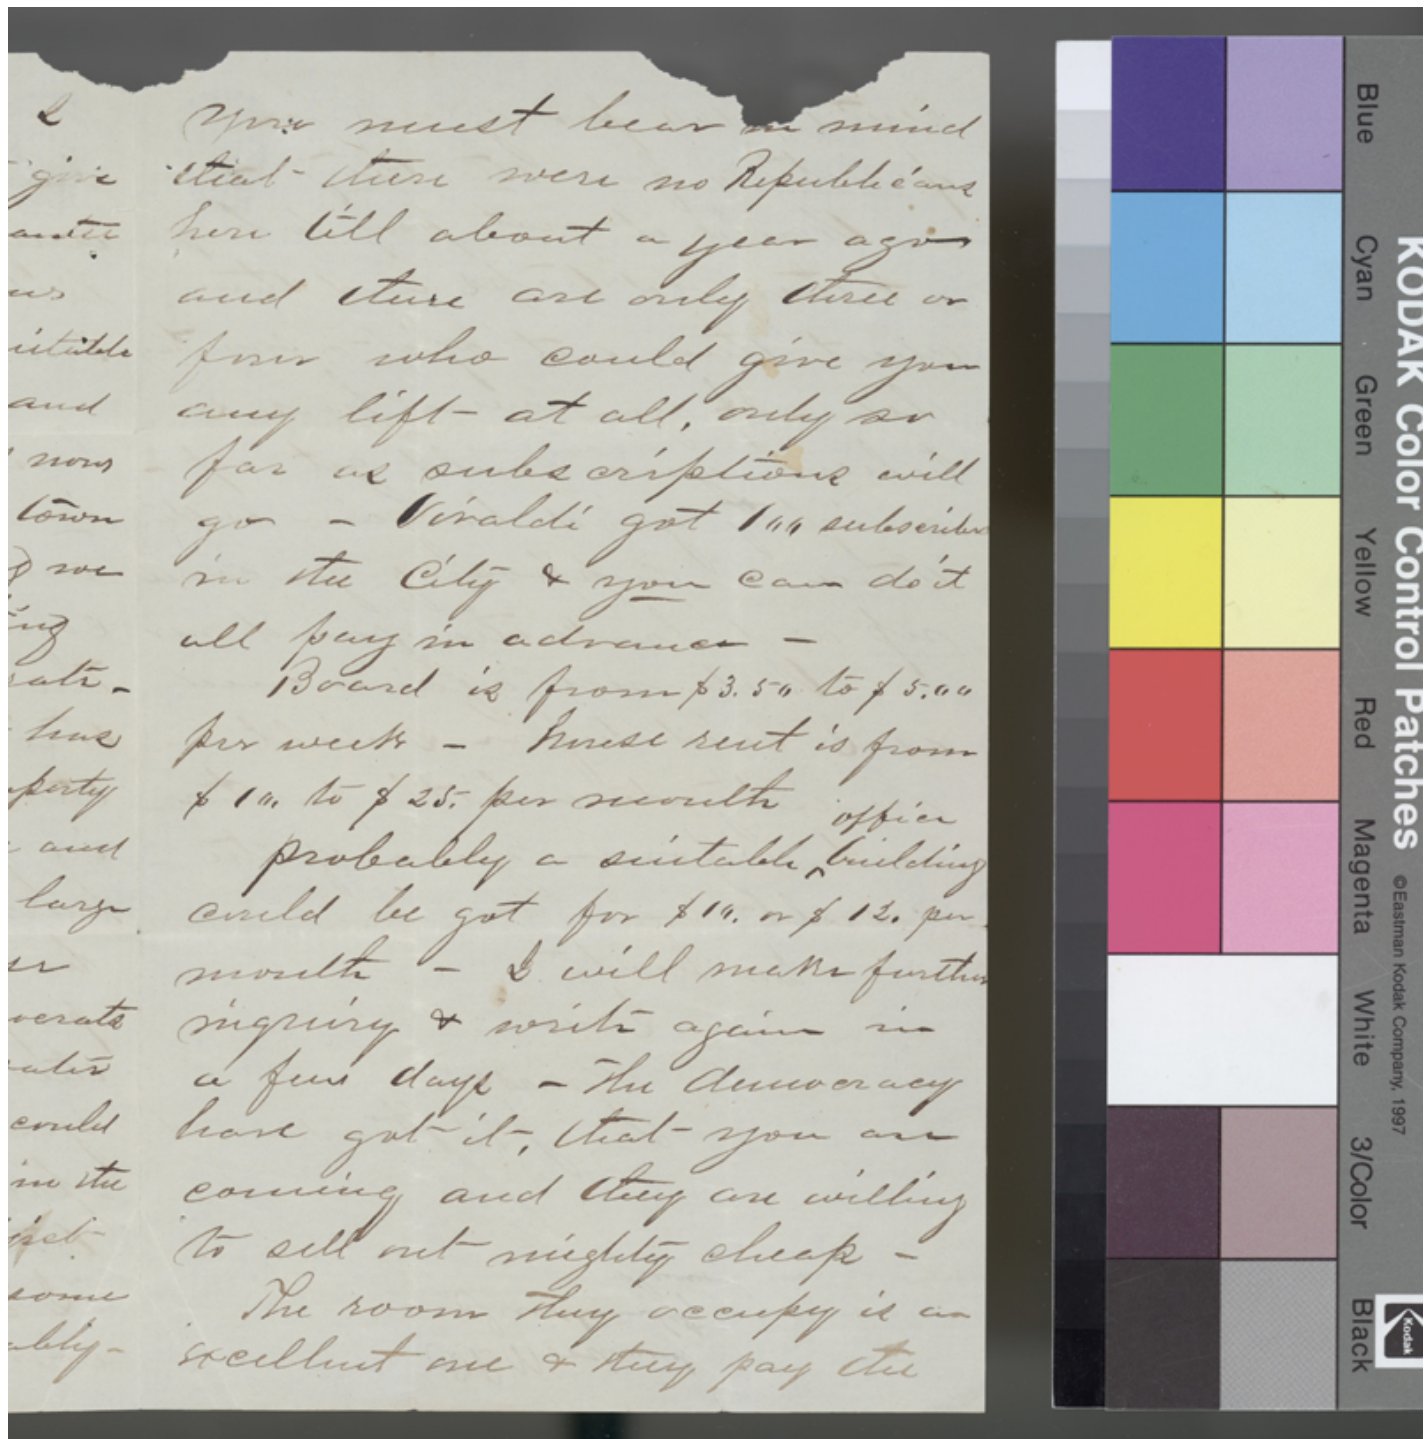 I
give
antee
us
uitable
and
now
town
we
ing
rate -
has
perty
and
large
er
ocrats
ater
could
in the
irst
some
ably -
You must bear in mind
that there were no Republicans
here till about a year ago
and there are only three or
four who could give you
any lift at all, only so
far as subscriptions will
go - Vivaldi got 100 subscribers
in the City & you can do it
all pay in advance -
Board is from $3.50 to $5.00
per week - house rent is from
$10. to $25. per month
office
probably a suitable ‸ building
could be got for $10. or $12. per
month - I will make further
inquiry & write again in
a few days - The democracy
have got it, that you are
coming and they are willing
to sell out mighty cheap -
The room they occupy is an
excellent one & they pay the
KODAK Color Control Patches
©Eastman Kodak Company, 1997
Blue
Cyan
Green
Yellow
Red
Magenta
White
3/Color
Black
Kodak